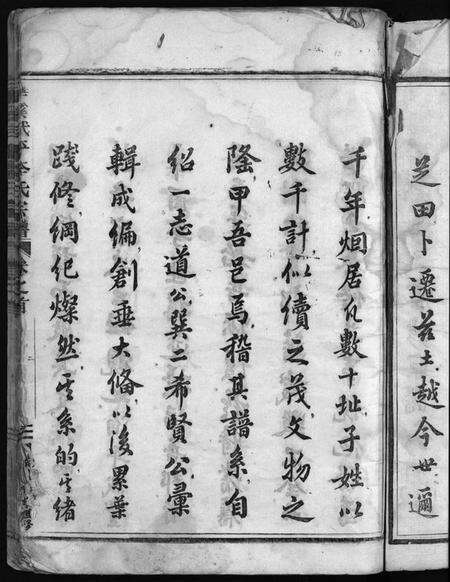 芝田卜遷茲土越今世邇
千年烟居凡數十址子姓以
數千計似續之茂文物之
隆甲吾邑焉稽其譜系自
紹一志道公巽二希賢公彙
輯成編創垂大備以後累葉
踐修綱紀燦然其系的其緒
李氏宗譜 卷之首